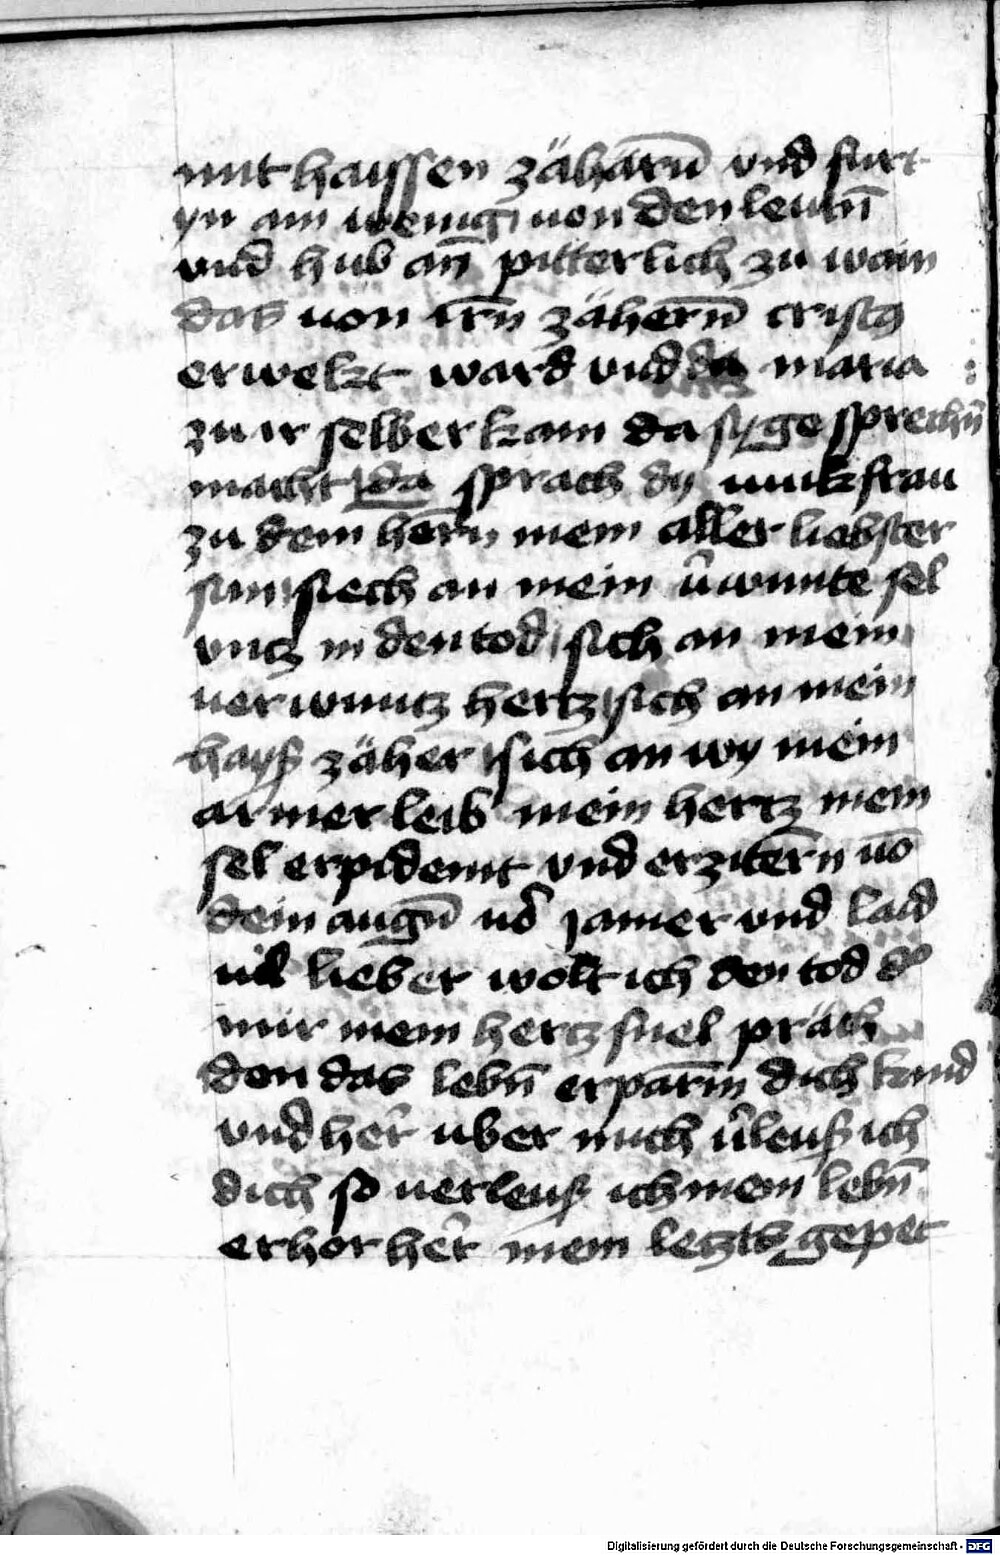 mit haissen zäharn̄ vnd furt
yn ain wenig von den leutn̄
vnd hub an̄ pitterlich zu wain
das von irn̄ zähern̄ cristꝯ
erwekt ward vnd da maria
zu ir selber kam da sy gesprechn̄
macht da sprach dy junkfrau
zu dem hern̄ mein aller liebster
sun siech an mein v̄wunte sel
vntz in den tod sich an mein
uerwuntz hertz sich an mein
hayß zäher sich an wy mein
armer leib mein hertz mein
sel erpidemt vnd erzitern̄ uō
dein augn̄ uō jamer vnd laid
uil lieber wolt ich den tod dꝰ
mir mein hertz snel präch
den das lebn̄ erparm̄ dich kind
vnd her̄ uber mich v̄leuß ich
dich so uerleuß ich mein lebn̄
erhor her̄ mein letzts gepet
Digitalisierung gefördert durch die Deutsche Forschungsgemeinschaft - DFG